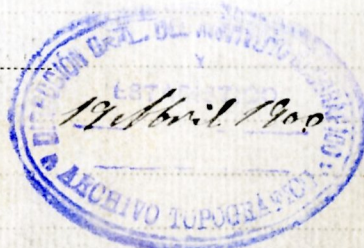 DIRECCIÓN GRAL. DEL INSTITUTO GEOGRÁFICO
Y
ESTADÍSTICO
19 Abril 1900
ARCHIVO TOPOGRÁFICO